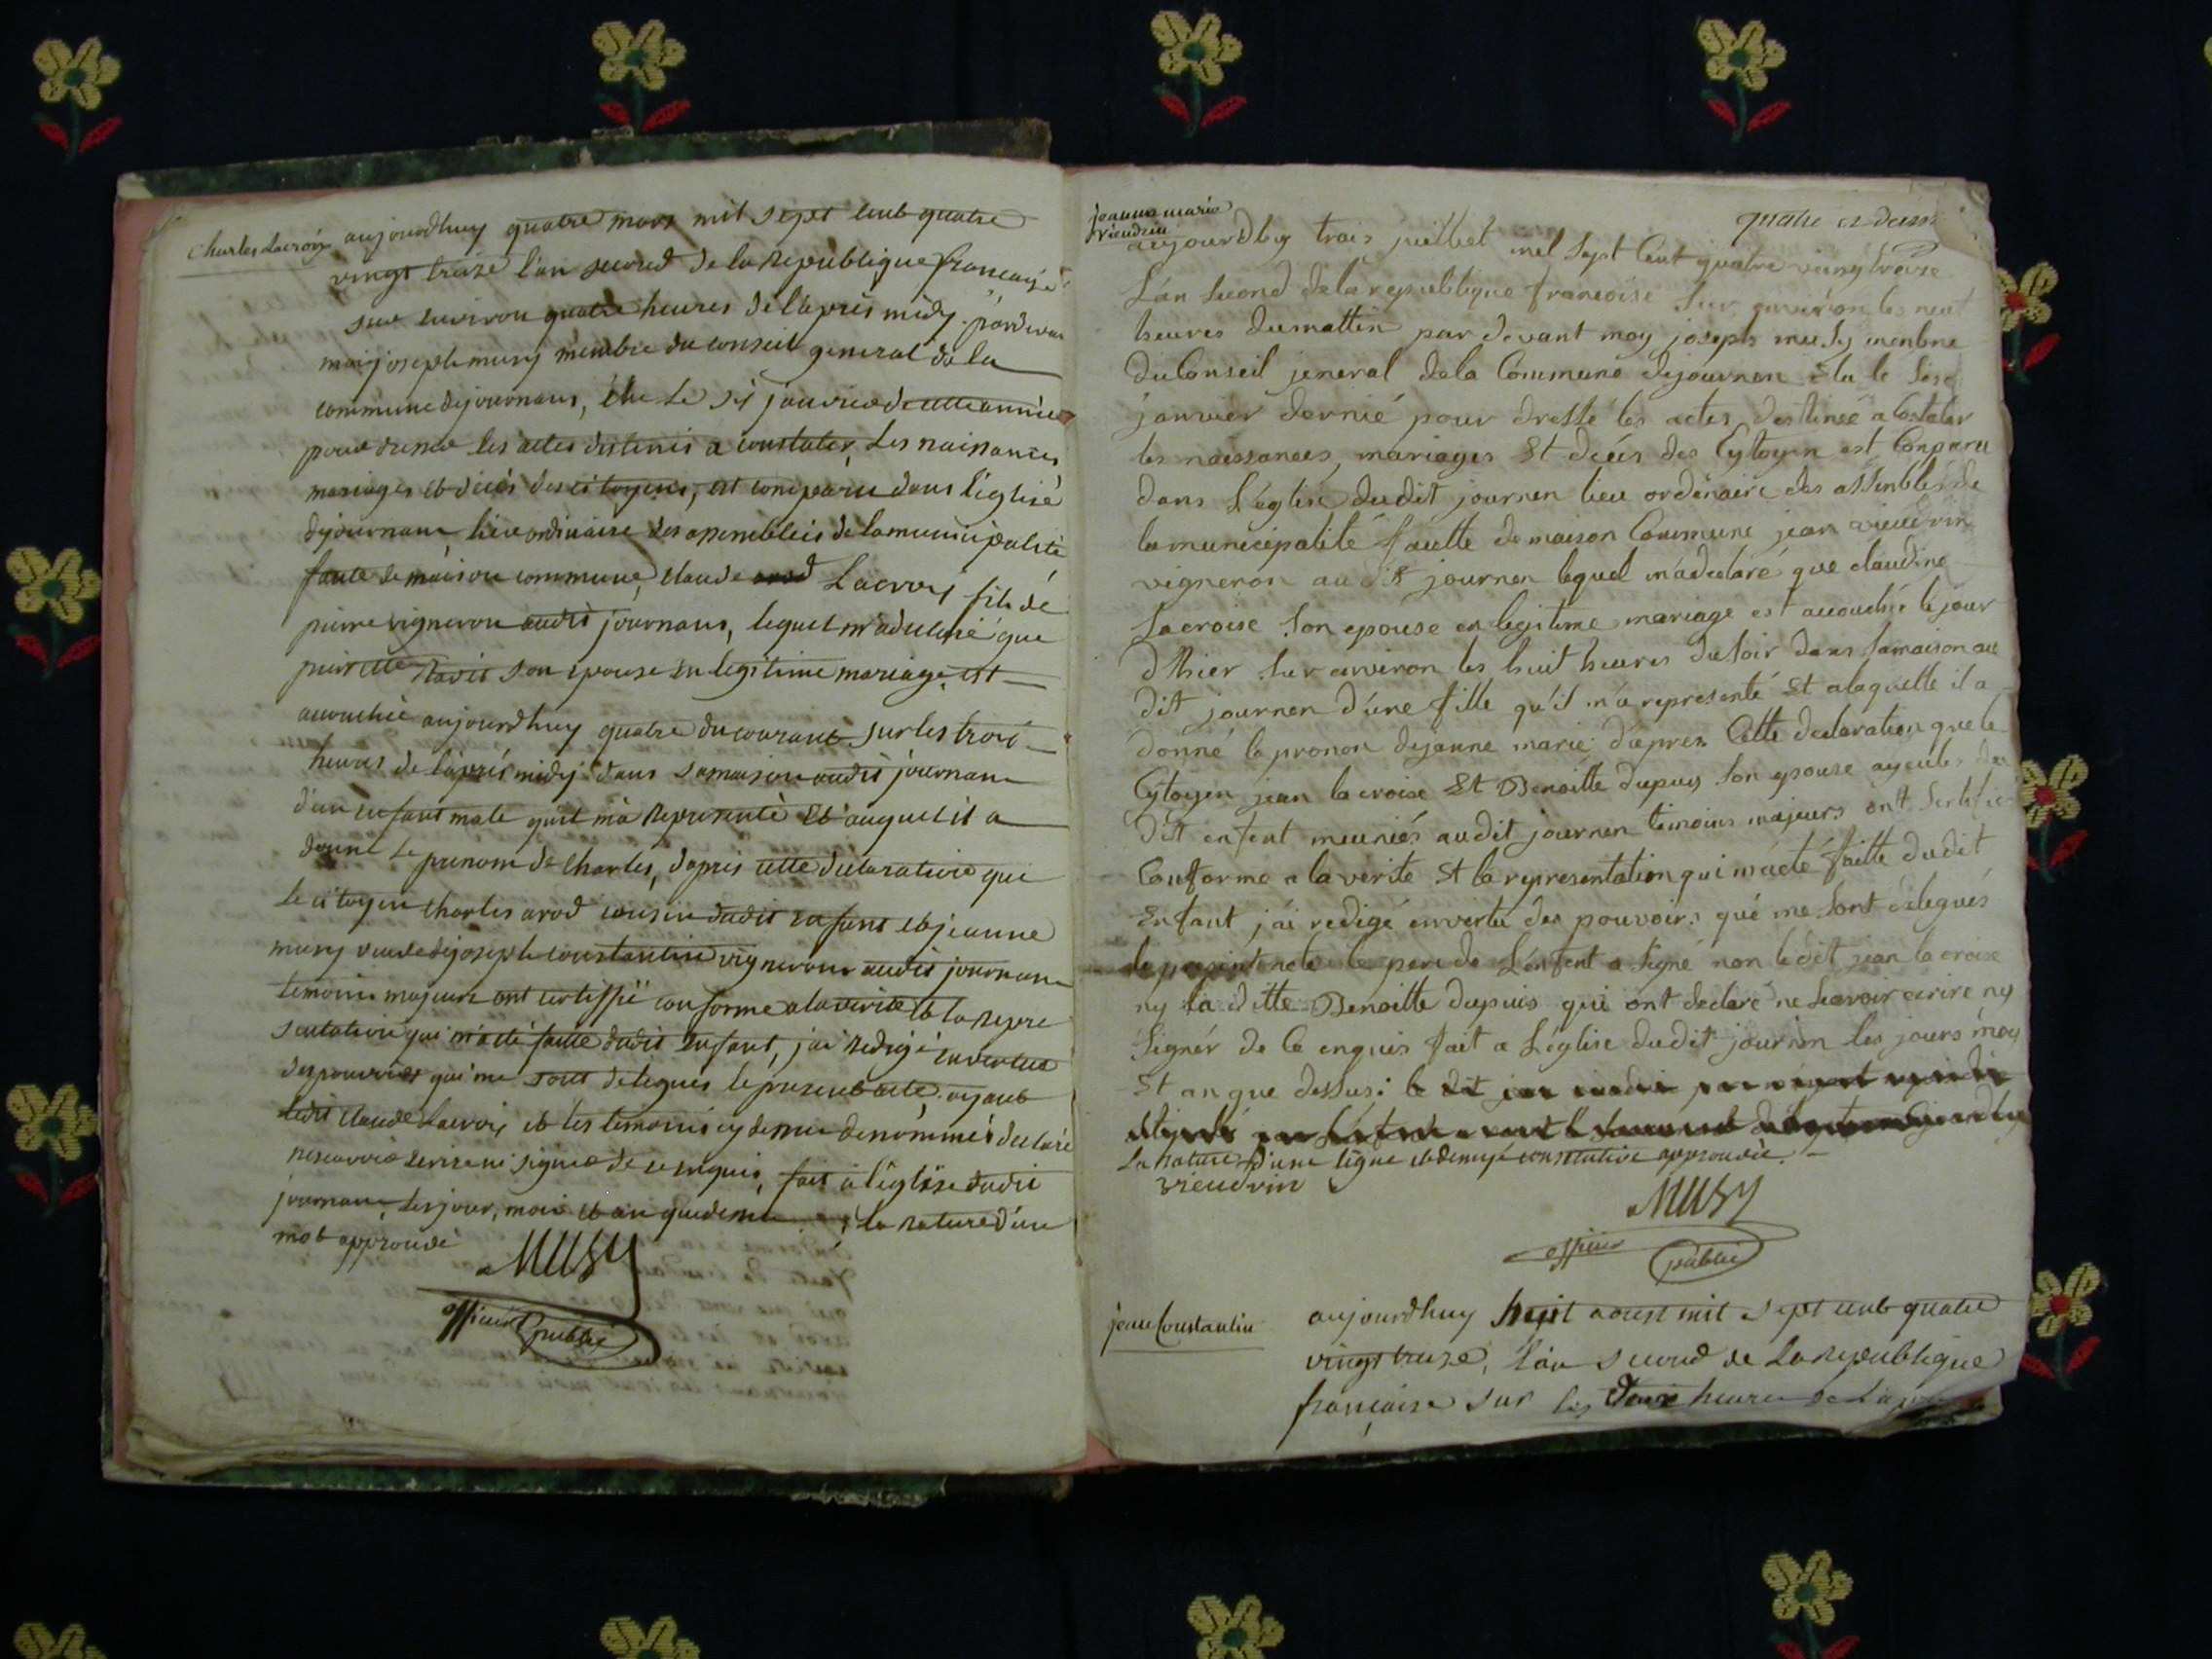 Charles Lacroix
aujourdhuy quatre mars mil sept cent quatre
vingt traize l'an second de la Republique francaise
sur environ quatre heures de l'apres midy pardevan
moi joseph musy membre du conseil general de la
commune dejournans, élu le six janvier de cette année
pour dresser les actes destinés a constater les naissances
mariages et décès des citoyens, est comparu dans l'église
dejournans lieu ordinaire des assemblées de la municipalité
faute de maison commune, claude Lacroix fils de
pierre vigneron audit journans, lequel m'a declaré que
pierrette son epouse en legitime mariage, est
accouchée aujourdhuy quatre du courant sur les trois
heures de l'après midy dans sa maison audit journans
d'un enfant male qu'il m'a Representé Et auquel il a
donné le prenom de Charles, d'apres cette declaration que
le citoyen charles arod cousin dudit enfant et jeanne
musy veuve de joseph constantin vignerons audit journans
temoins majeurs ont certiffié conforme a la verité et la Repre
sentation qui m'a été faitte dudit Enfant, j'ai Redigé en vertue
des pouvoirs qui me sont delegués le present acte, ayant
ledit claude Lacroix et les temoins cy dessus denommés declaré
ne scavoir ecrire ni signer de ce enquis, fait a l'église dudit
journans, les jour, mois et an que dessus; la rature d'un
mot approuvé
Musy
officier public
quatre et
jeanne marie
vieudrin
aujourdhuy trois juillet mil sept Cent quatre vingt treize
L'an second de la republique francoise sur anviron les neuf
heures du mattin par devant moy joseph musy menbre
du Conseil jeneral de la Commune dejournen élu le sise
janvier dernié pour dressé les actes destinée a Costater
les naissances, mariages Et décés des Cytoyen est Conparu
dans L'eglise dudit journen lieu ordenaire des assenblés de
la municipalité fautte de maison Commune jean vieudrin
vigneron au dit journen lequel m'a declaré que claudine
Lacroise son epouse en legitime mariage est accouchée le jour
d'hier sur anviron les huit heures du soir dans sa maison au
dit journen d'une fille qu'il m'a representé Et a laquelle il a
donné le pronon de janne marie d'apres Cette declaration que le
Cytoyen jean la croise Et Benoitte dupuy son epouse ayeuls du
dit enfent meuniés audit journen temoins majeurs ont
Conforme a la verité Et la representation qui m'a été faitte dudit
Enfant j'ai redigé envertu des pouvoirs qué me sont délegués
le present acte le pere de L'enfent a signé non le dit jean la croise
ny la ditte Benoitte dupuis qui ont declaré ne scavoir ecrire ny
signér de Ce enquis fait a L'eglise dudit journen les jours moy
Et an que dessus; le dit
La rature d'une ligne et demye constitutive approuvée.
vieudrin
Musy
officier public
jean Constantin
aujourdhuy huit aoust mil sept cent quatre
vingt traize, l'an second de La Republique
francaise sur les heures de